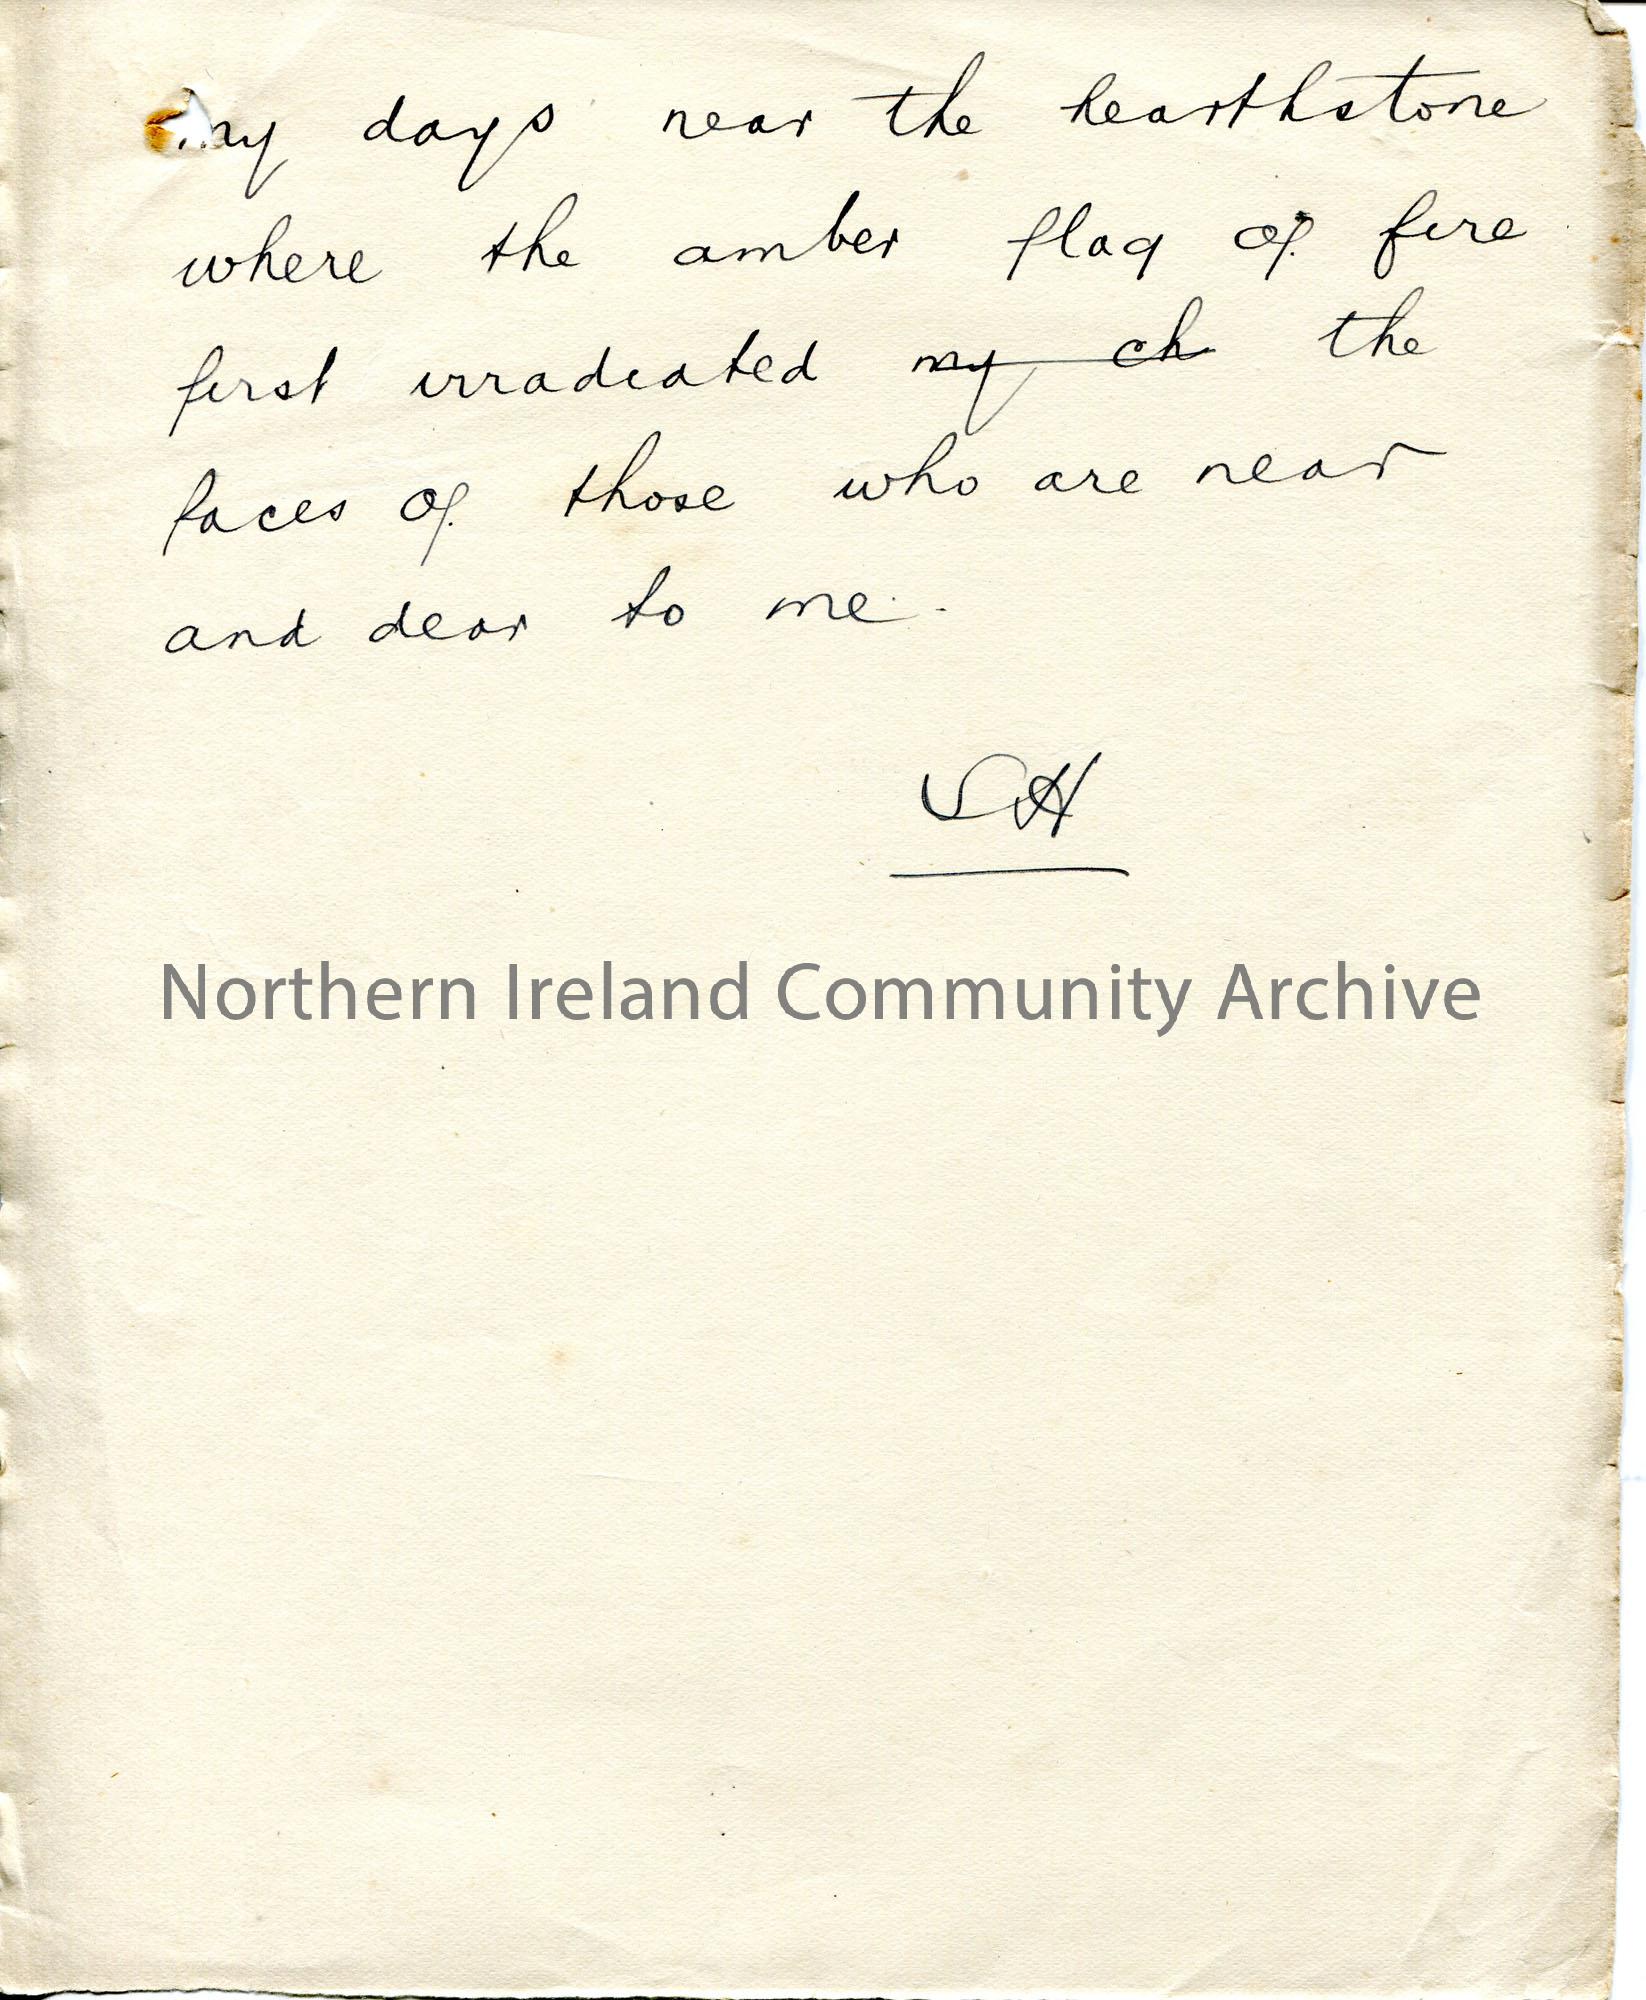 my days near the hearthstone
where the amber flag of fire
first irradiated my ch the
faces of those who are near
and dear to me.
SH
Northern Ireland Community Archive